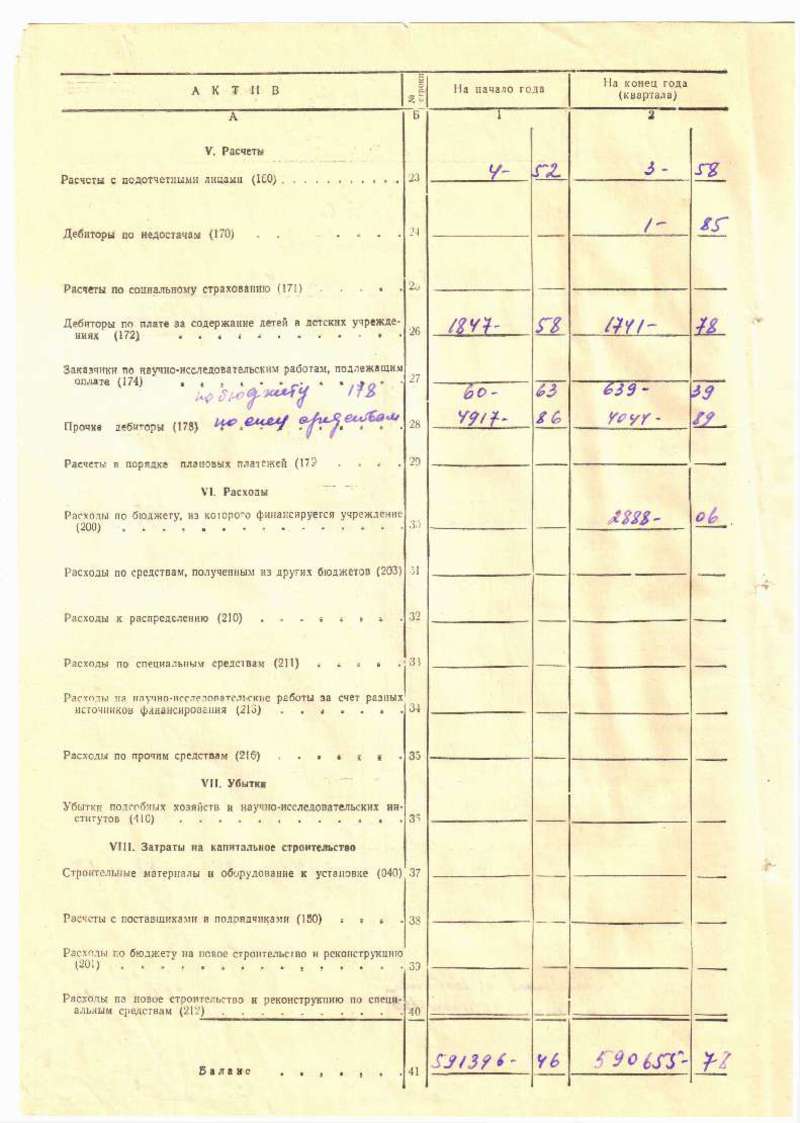 А К Т И В № строки На начало года На конец года (квартала)
А Б 1 2
V. Расчеты
Расчеты с подотчетными лицами (160) . . . . . . . . . . . 23 4- 52 3- 58
Дебиторы по недостачам (170) . . . . . . . 24 1- 85
Расчеты по социальному страхованию (171) . . . . . 25
Дебиторы по плате за содержание детей в детских учрежде-
ниях (172) . . . . . . . . . . . . 26 1847- 58 1741- 78
Заказчики по научно-исследовательским работам, подлежащим
оплате (174) . . . . . . . . . . . 27
по бюджету 178 60- 63 639- 39
Прочие дебиторы (178) по спец средствам 28 4917- 86 4044- 89
Расчеты в порядке плановых платежей (179 . . . . 29
VI. Расходы
Расходы по бюджету, из которого финансируется учреждение
(200) . . . . . . . . . . . . . . 30 2888- 06
Расходы по средствам, полученным из других бюджетов (203) 31
Расходы к распределению (210) . . . . . . . 32
Расходы по специальным средствам (211) . . . . . 33
Расходы на научно-исследовательские работы за счет разных
источников финансирования (213) . . . . . . . 34
Расходы по прочим средствам (216) . . . . . . 35
VII. Убытки
Убытки подсобных хозяйств и научно-исследовательских ин-
ститутов (410) . . . . . . . . . . . 36
VIII. Затраты на капитальное строительство
Строительные материалы и оборудование к установке (040) 37
Расчеты с поставщиками и подрядчиками (150) . . . . 38
Расходы по бюджету на новое строительство и реконструкцию
(201) . . . . . . . . . . . . . . 39
Расходы на новое строительство и реконструкцию по специ-
альным средствам (212) . . . . . . . . . . 40
Баланс . . . . . . . 41 591396- 46 590655- 78